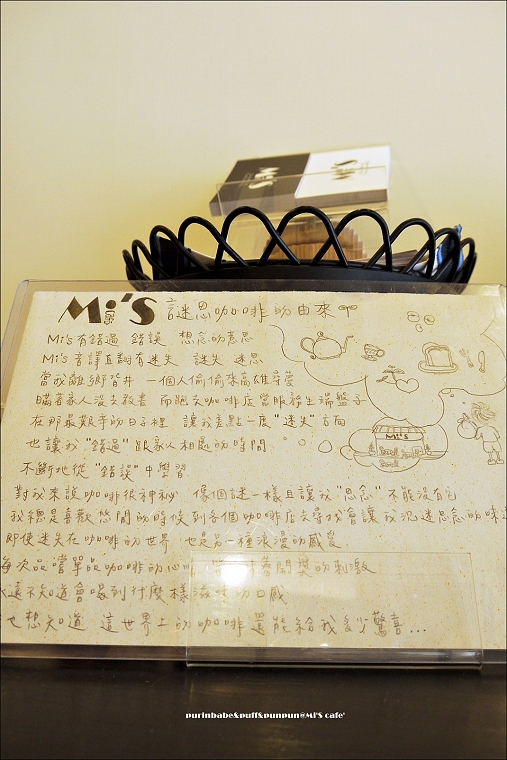 Mi'S
Mi'S
Mi'S 謎思咖啡的由來
Mi's有錯過 錯誤 想念的意思
Mi's音譯且謝有迷失 謎失 迷思
當我離鄉背井 一個人偷偷來高雄尋夢
瞞著家人沒去教書 而跑去咖啡店當服務生端盤子
在那最艱辛的日子裡 讓我差點一度"迷失"方向
也讓我"錯過"跟家人相處的時間
不斷地從"錯誤"中學習
對我來說咖啡很神秘 像個謎一樣且讓我"思念"不能沒有它
我總是喜歡悠閒的時候到各個咖啡店去尋找會讓我沉迷思念的味道
即使迷失在咖啡的世界 也是另一種浪漫的感覺
每次品嚐單品咖啡的心 開獎的刺激
永遠不知道會喝到什麼樣滋味的口感
也想知道 這世界上的咖啡還能給我多少驚喜...
Mi'S
purinbabe&puff&punpun@Mi'S cafe'